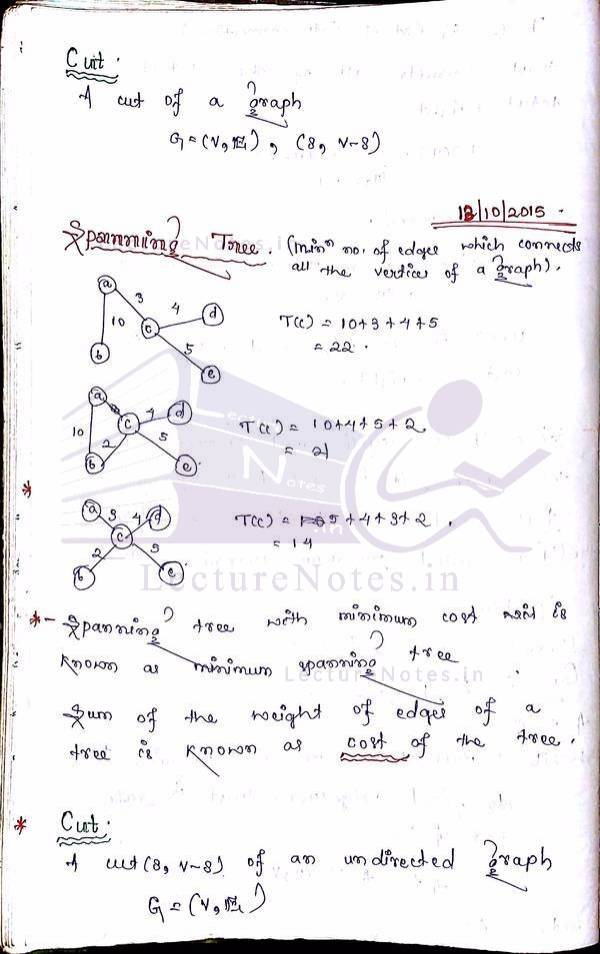 Cut.
A cut of a graph
G = (V, E), (S, V-S)
12/10/2015.
Spanning Tree. (minm no. of edges which connects
all the vertices of a graph).
a
3
4
d
10
c
b
5
e
T(c) = 10+3+4+5
= 22.
a
c
4
d
10
2
5
b
e
T(c) = 10+4+5+2
= 21
*
a
3
4
d
c
2
5
b
e
T(c) = 5+4+3+2.
= 14
LectureNotes.in
*- Spanning tree with minimum cost is
known as minimum spanning tree
LectureNotes.in
Sum of the weight of edges of a
tree is known as cost of the tree.
* Cut.
A cut (S, V-S) of an undirected graph
G = (V, E)